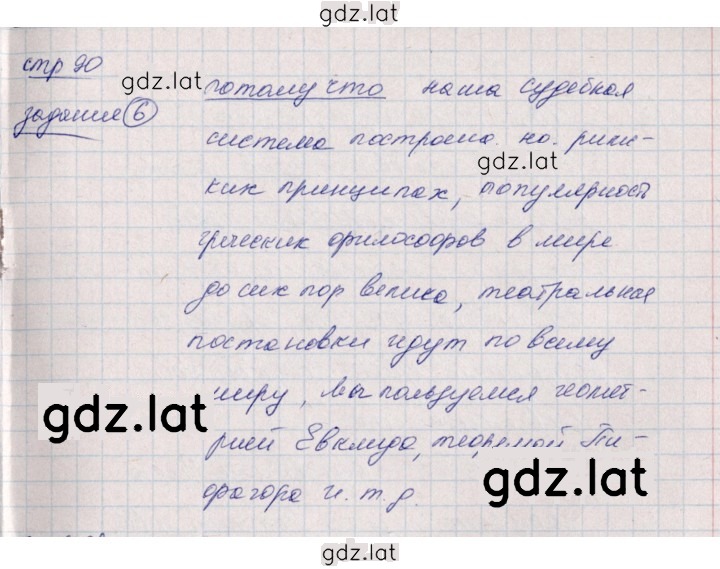 gdz.lat
стр 90
gdz.lat
потому что наша судебная
задание 6
система построена на рим-
gdz.lat
ких принципах, популярность
греческих философов в мире
до сих пор велика, театральные
постановки идут по всему
миру, мы пользуемся геомет-
gdz.lat
рией Евклида, теоремой Пи-
gdz.lat
фагора и.т.д.
gdz.lat